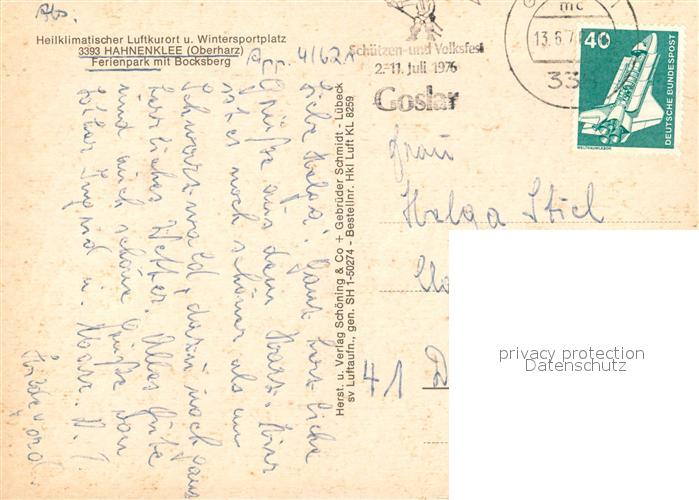 Abs.
Heilklimatischer Luftkurort u. Wintersportplatz
3393 HAHNENKLEE (Oberharz)
Ferienpark mit Bocksberg
App. 41621
Liebe Helga! Ganz herzliche
Grüße aus dem Harz. Hier
ist es noch schöner als im
Schwarzwald, dazu noch ganz
herrliches Wetter. Alles Gute
und auch schöne Grüße von
Ingrid u.
Herst. u. Verlag Schöning & Co + Gebrüder Schmidt - Lübeck
sv Luftaufn., gen. SH 1-50274 - Bestellnr. Hkl Luft KL 8259
Schützen- und Volksfest
2.-11. Juli 1976
Goslar
mc
13.6.7
33
40
DEUTSCHE BUNDESPOST
WELTRAUMLABOR
Frau
Helga Stiel
41 D
privacy protection
Datenschutz